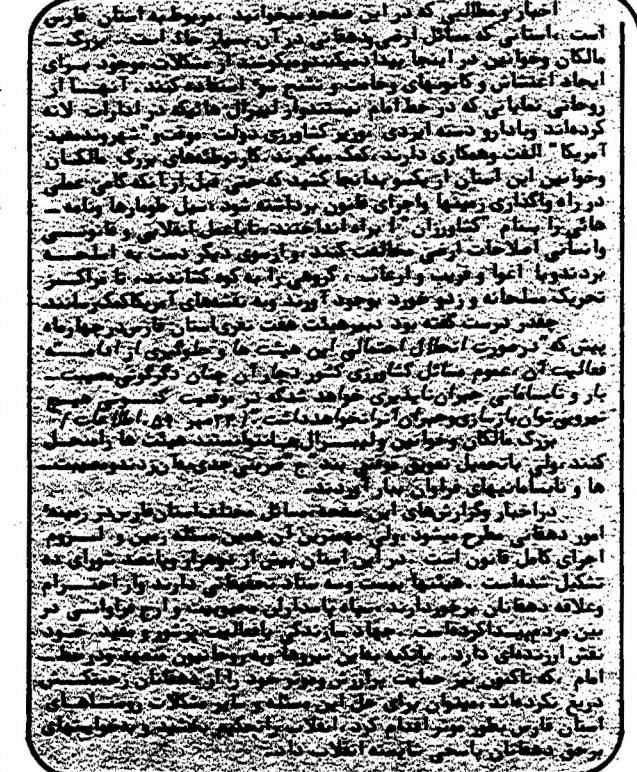 اخبار و مطالبی که در این صفحه میخوانید، مربوط به استان فارس
است، استانی که مسائل ارضی و دهقانی در آن بسیار حاد است. بزرگ
مالکان و خوانین در اینجا پیدا میکنند و میکوشند از مشکلات موجود برای
ایجاد اغتشاش و کانونهای وخامت و تشنج سوء استفاده کنند. آنها از
روحانی نمایانی که در خط امام نیستند و از لیبرال هائیکه در ادارات لانه
کرده‌اند و با دار و دسته ایزدی "وزیر کشاورزی دولت موقت و شهروند مفید
آمریکا" الفت و همکاری دارند، کمک میگیرند. کار توطئه‌های بزرگ مالکان
و خوانین این استان از یکسو بدانجا کشید که حتی قبل از آنکه گامی عملی
در راه واگذاری زمینها و اجرای قانون برداشته شود، سیل طومارها و نامه
هائی را بنام "کشاورزان" براه انداختند، تا با عمل انقلابی و قانونی
و اساسی اصلاحات ارضی مخالفت کنند، و از سوی دیگر دست به اسلحه
بردند و با اغوا و فریب و ارعاب، گروهی را به کوه کشاندند، تا مراکز
تحریک مسلحانه و زد و خورد بوجود آورند و به نقشه‌های آمریکا کمک رسانند.
چقدر درست گفته بود دبیر هیئت هفت نفری استان فارس در چهار ماه
پیش که "در صورت انحلال احتمالی این هیئت ها و جلوگیری از ادامه
فعالیت آن، عموم مسائل کشاورزی کشور دچار آن چنان دگرگونی مصیبت
بار و نابسامانی جبران ناپذیری خواهد شد که در موقعیت کنونی هیچ
نیرویی توان بازسازی و جبران آنرا نخواهد داشت." (۲۳ مهر ۵۹، اطلاعات)
بزرگ مالکان و خوانین و لیبرال‌ها نتوانستند هیئت ها را منحل
کنند، ولی با تحمیل تعویق موقتی بند "ج" ضربتی جدی به آن زدند و مصیبت
ها و نابسامانیهای فراوان ببار آوردند.
در اخبار و گزارش‌های این صفحه، مسائل مختلف استان فارس در زمینه
امور دهقانی مطرح میشود، ولی مهمترین آن همین مسئله زمین و لزوم
اجرای کامل قانون است. در این استان بیش از دو هزار و پانصد شورای ده
تشکیل شده‌است. هیئتها بیست و سه ستاد دهقانی دارند و از احترام
و علاقه دهقانان برخوردارند. سپاه پاسداران محبوبیت و ارج فراوانی در
بین مردم پیدا کرده‌است. جهاد سازندگی با فعالیت پرشور و مفید خود
نقش ارزنده‌ای دارد. با تکیه به این نیروها و به روحانیون متعهد و در خط
امام، که تاکنون نیز حمایت پرارزش و موثر خود را از دهقانان زحمتکش
دریغ نکرده‌اند، میتوان برای حل این مسئله و سایر مشکلات روستاهای
استان فارس بطور موثر اقدام کرد، انقلاب را تحکیم بخشید و به خواستهای
برحق دهقانان پاسخی شایسته انقلاب داد.